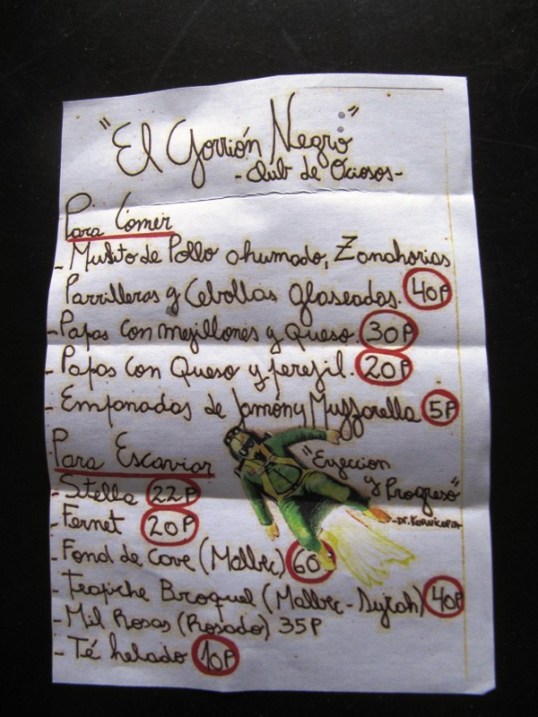 "El Gorrión Negro"
-Club de Ociosos-
Para Comer
- Muslito de Pollo ahumado, Zanahorias
Parrilleras y Cebollas glaseadas. 40P
- Papas con mejillones y Queso. 30P
- Papas con Queso y perejil. 20P
- Empanadas de Jamón y Muzzarella 5P
Para Escaviar
- Stella 22P
- Fernet 20P
- Fond de Cave (Malbec) 60
- Trapiche Broquel (Malbec - Syrah) 40P
- Mil Rosas (Rosado) 35P
- Té helado 10P
"Eyeccion
y Progreso"
-Dr. Kornicopia